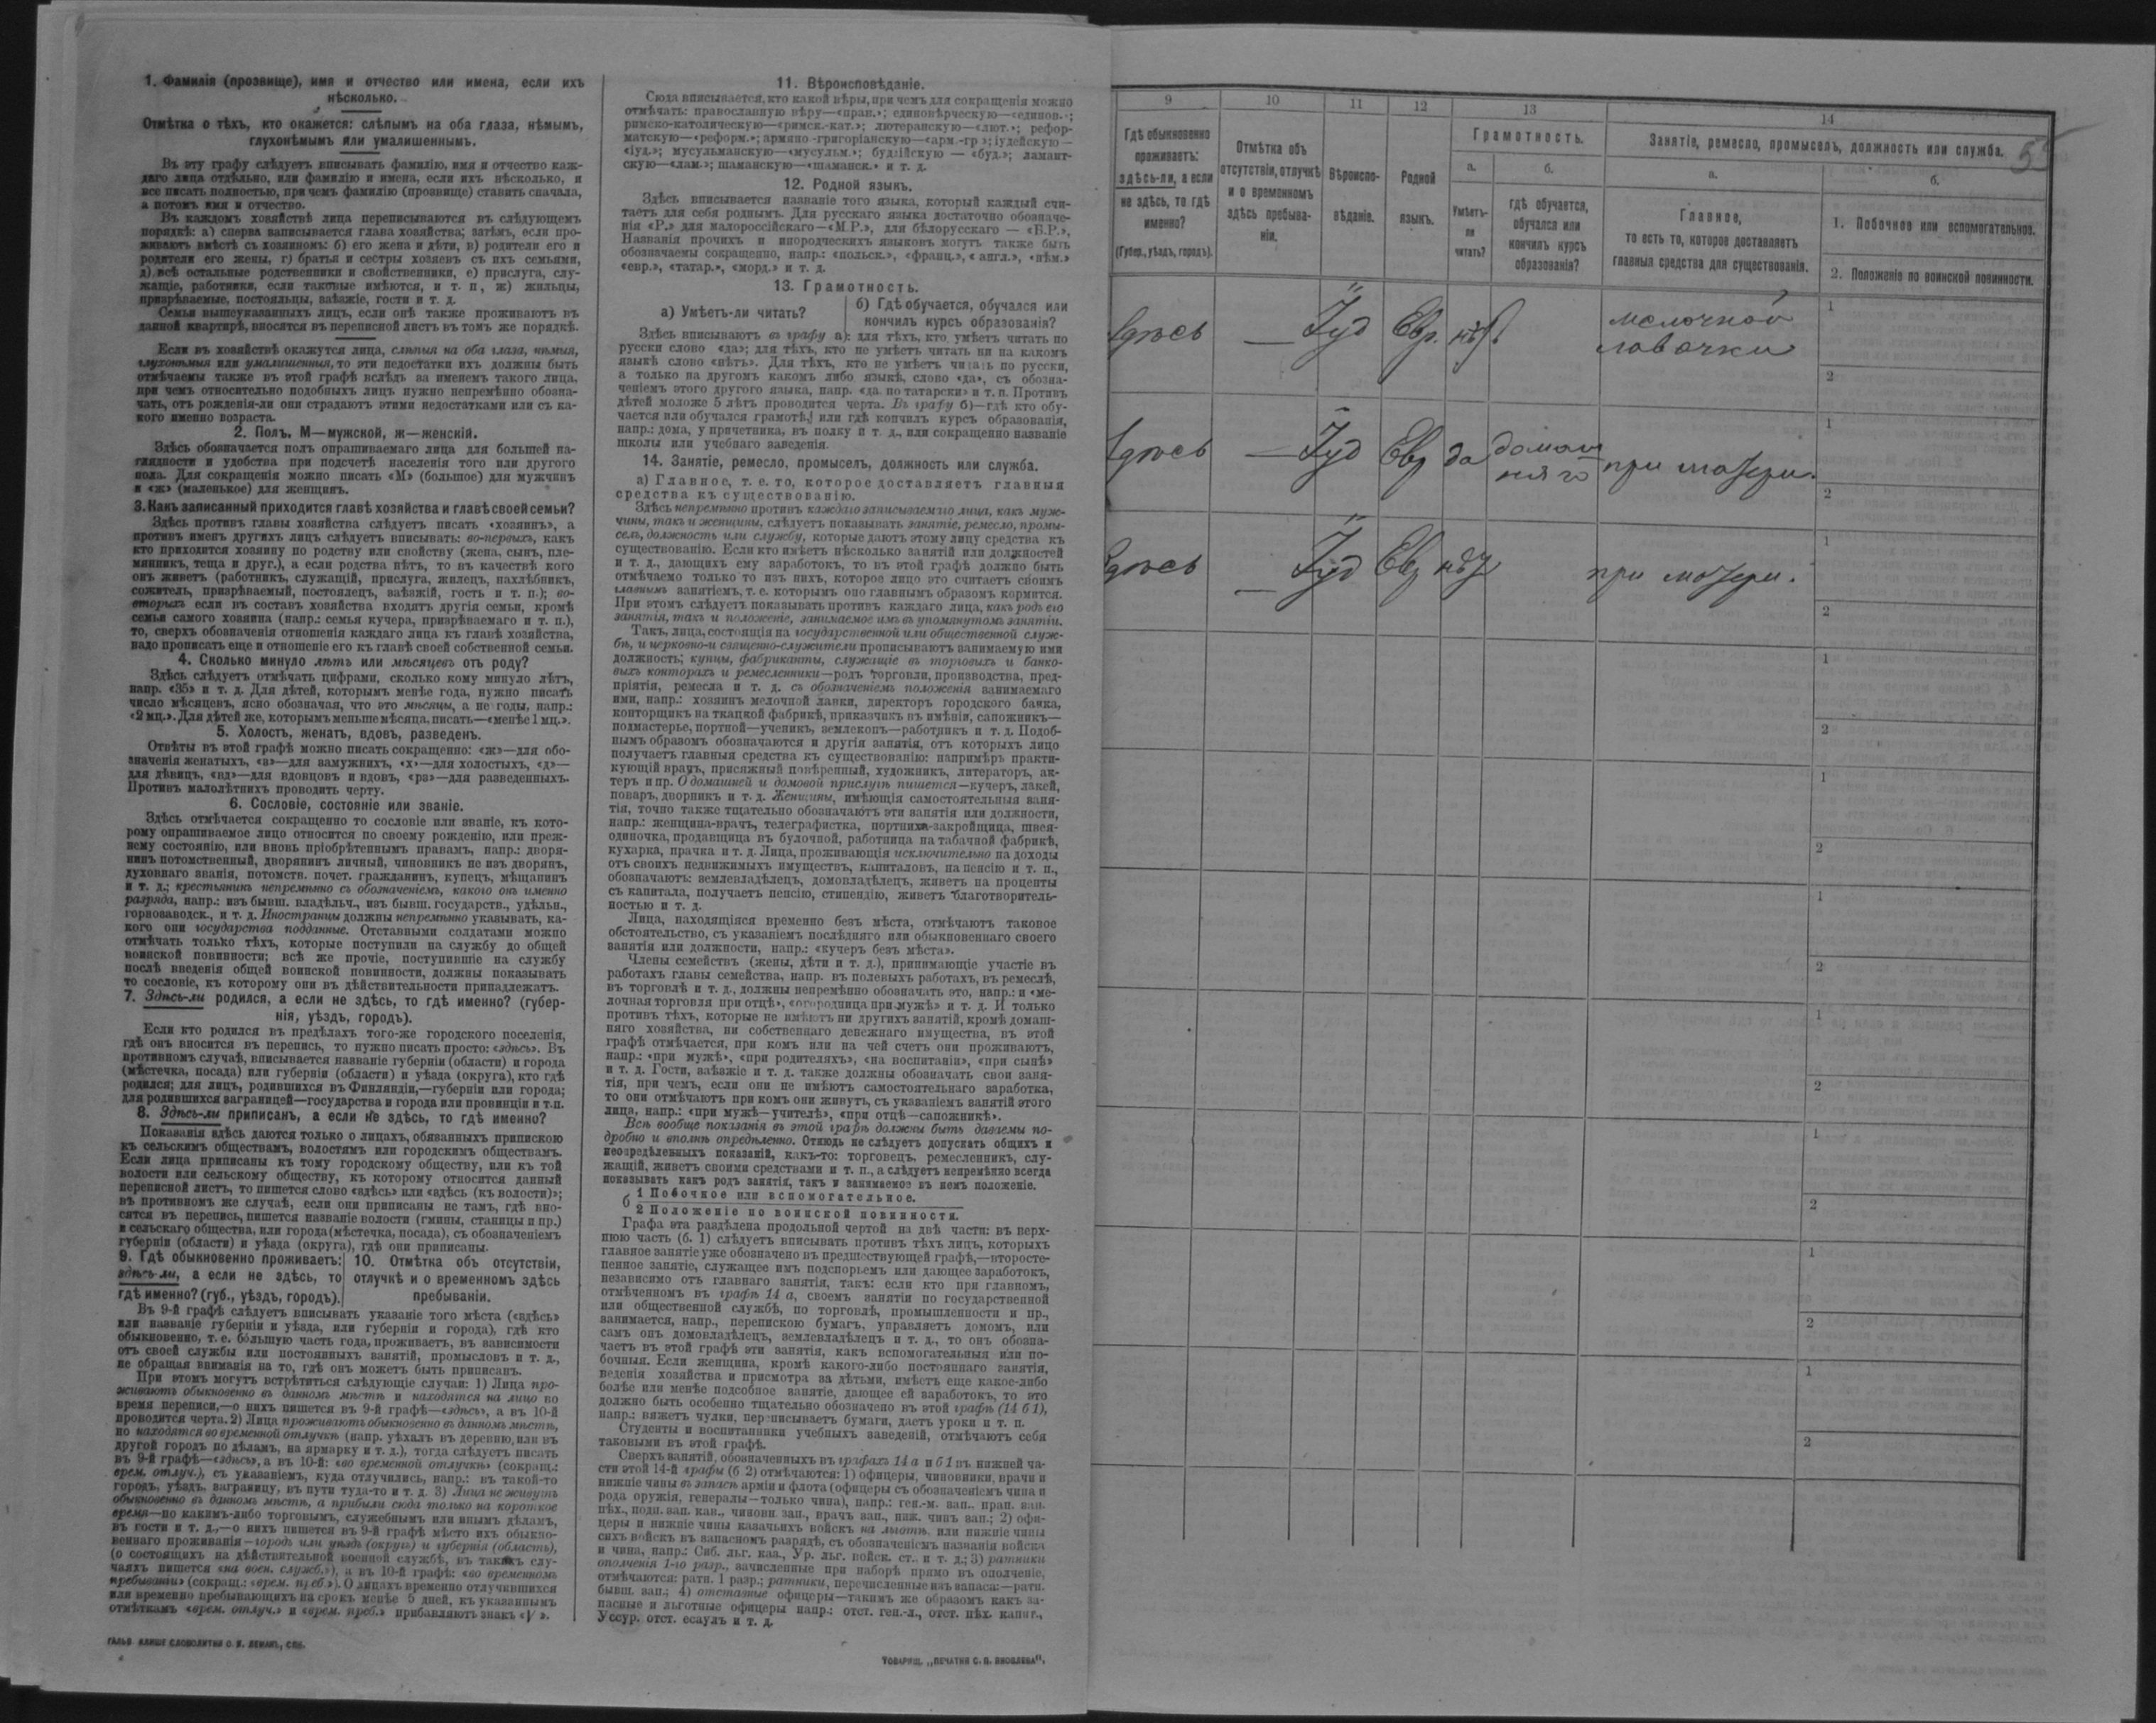 1. Фамилія (прозвище), имя и отчество или имена, если ихъ
нѣсколько.
Отмѣтка о тѣхъ, кто окажется: слѣпымъ на оба глаза, нѣмымъ,
глухонѣмымъ или умалишеннымъ.
Въ эту графу слѣдуетъ вписывать фамилію, имя и отчество каж-
даго лица отдѣльно, или фамилію и имена, если ихъ нѣсколько, и
все писать полностью, при чемъ фамилію (прозвище) ставить сначала,
а потомъ имя и отчество.
Въ каждомъ хозяйствѣ лица переписываются въ слѣдующемъ
порядкѣ: а) сперва записывается глава хозяйства; затѣмъ, если про-
живаютъ вмѣстѣ съ хозяиномъ: б) его жена и дѣти, в) родители его и
родители его жены, г) братья и сестры хозяевъ съ ихъ семьями,
д) всѣ остальные родственники и свойственники, е) прислуга, слу-
жащіе, работники, если таковые имѣются, и т. п, ж) жильцы,
призрѣваемые, постояльцы, заѣзжіе, гости и т. д.
Семьи вышеуказанныхъ лицъ, если онѣ также проживаютъ въ
данной квартирѣ, вносятся въ переписной листъ въ томъ же порядкѣ.
Если въ хозяйствѣ окажутся лица, слѣпыя на оба глаза, нѣмыя,
глухонѣмыя или умалишенныя, то эти недостатки ихъ должны быть
отмѣчаемы также въ этой графѣ вслѣдъ за именемъ такого лица,
при чемъ относительно подобныхъ лицъ нужно непремѣнно обозна-
чать, отъ рожденія-ли они страдаютъ этими недостатками или съ ка-
кого именно возраста.
2. Полъ. М—мужской, ж—женскій.
Здѣсь обозначается полъ опрашиваемаго лица для большей на-
глядности и удобства при подсчетѣ населенія того или другого
пола. Для сокращенія можно писать «М» (большое) для мужчинъ
и «ж» (маленькое) для женщинъ.
3. Какъ записанный приходится главѣ хозяйства и главѣ своей семьи?
Здѣсь противъ главы хозяйства слѣдуетъ писать «хозяинъ», а
противъ именъ другихъ лицъ слѣдуетъ вписывать: во-первыхъ, какъ
кто приходится хозяину по родству или свойству (жена, сынъ, пле-
мянникъ, теща и друг.), а если родства нѣтъ, то въ качествѣ кого
онъ живетъ (работникъ, служащій, прислуга, жилецъ, нахлѣбникъ,
сожитель, призрѣваемый, постоялецъ, заѣзжій, гость и т. п.); во-
вторыхъ если въ составъ хозяйства входятъ другія семьи, кромѣ
семьи самого хозяина (напр.: семья кучера, призрѣваемаго и т. п.),
то, сверхъ обозначенія отношенія каждаго лица къ главѣ хозяйства,
надо прописать еще и отношеніе его къ главѣ своей собственной семьи.
4. Сколько минуло лѣтъ или мѣсяцевъ отъ роду?
Здѣсь слѣдуетъ отмѣчать цифрами, сколько кому минуло лѣтъ,
напр. «35» и т. д. Для дѣтей, которымъ менѣе года, нужно писать
число мѣсяцевъ, ясно обозначая, что это мѣсяцы, а не годы, напр.:
«2 мц.». Для дѣтей же, которымъ меньше мѣсяца, писать—«менѣе 1 мц.».
5. Холостъ, женатъ, вдовъ, разведенъ.
Отвѣты въ этой графѣ можно писать сокращенно: «ж»—для обо-
значенія женатыхъ, «з»—для замужнихъ, «х»—для холостыхъ, «д»—
для дѣвицъ, «вд»—для вдовцовъ и вдовъ, «рз»—для разведенныхъ.
Противъ малолѣтнихъ проводить черту.
6. Сословіе, состояніе или званіе.
Здѣсь отмѣчается сокращенно то сословіе или званіе, къ кото-
рому опрашиваемое лицо относится по своему рожденію, или преж-
нему состоянію, или вновь пріобрѣтеннымъ правамъ, напр.: дворя-
нинъ потомственный, дворянинъ личный, чиновникъ не изъ дворянъ,
духовнаго званія, потомств. почет. гражданинъ, купецъ, мѣщанинъ
и т. д.; крестьянинъ непремѣнно съ обозначеніемъ, какого онъ именно
разряда, напр.: изъ бывш. владѣльч., изъ бывш. государств., удѣльн.,
горнозаводск., и т. д. Иностранцы должны непремѣнно указывать, ка-
кого они государства подданные. Отставными солдатами можно
отмѣчать только тѣхъ, которые поступили на службу до общей
воинской повинности; всѣ же прочіе, поступившіе на службу
послѣ введенія общей воинской повинности, должны показывать
то сословіе, къ которому они въ дѣйствительности принадлежатъ.
7. Здѣсь-ли родился, а если не здѣсь, то гдѣ именно? (губер-
нія, уѣздъ, городъ).
Если кто родился въ предѣлахъ того-же городского поселенія,
гдѣ онъ вносится въ перепись, то нужно писать просто: «здѣсь». Въ
противномъ случаѣ, вписывается названіе губерніи (области) и города
(мѣстечка, посада) или губерніи (области) и уѣзда (округа), кто гдѣ
родился; для лицъ, родившихся въ Финляндіи,—губерніи или города;
для родившихся заграницей—государства и города или провинціи и т.п.
8. Здѣсь-ли приписанъ, а если не здѣсь, то гдѣ именно?
Показанія здѣсь даются только о лицахъ, обязанныхъ припискою
къ сельскимъ обществамъ, волостямъ или городскимъ обществамъ.
Если лица приписаны къ тому городскому обществу, или къ той
волости или сельскому обществу, къ которому относится данный
переписной листъ, то пишется слово «здѣсь» или «здѣсь (къ волости)»;
въ противномъ же случаѣ, если они приписаны не тамъ, гдѣ вно-
сятся въ перепись, пишется названіе волости (гмины, станицы и пр.)
и сельскаго общества, или города (мѣстечка, посада), съ обозначеніемъ
губерніи (области) и уѣзда (округа), гдѣ они приписаны.
9. Гдѣ обыкновенно проживаетъ:
здѣсь-ли, а если не здѣсь, то
гдѣ именно? (губ., уѣздъ, городъ).
10. Отмѣтка объ отсутствіи,
отлучкѣ и о временномъ здѣсь
пребываніи.
Въ 9-й графѣ слѣдуетъ вписывать указаніе того мѣста («здѣсь»
или названіе губерніи и уѣзда, или губерніи и города), гдѣ кто
обыкновенно, т. е. большую часть года, проживаетъ, въ зависимости
отъ своей службы или постоянныхъ занятій, промысловъ и т. д.,
не обращая вниманія на то, гдѣ онъ можетъ быть приписанъ.
При этомъ могутъ встрѣтиться слѣдующіе случаи: 1) Лица про-
живаютъ обыкновенно въ данномъ мѣстѣ и находятся на лицо во
время переписи,—о нихъ пишется въ 9-й графѣ—«здѣсь», а въ 10-й
проводится черта. 2) Лица проживаютъ обыкновенно въ данномъ мѣстѣ,
но находятся во временной отлучкѣ (напр. уѣхалъ въ деревню, или въ
другой городъ по дѣламъ, на ярмарку и т. д.), тогда слѣдуетъ писать
въ 9-й графѣ—«здѣсь», а въ 10-й: «во временной отлучкѣ» (сокращ.:
врем. отлуч.), съ указаніемъ, куда отлучились, напр.: въ такой-то
городъ, уѣздъ, заграницу, въ пути туда-то и т. д. 3) Лица не живутъ
обыкновенно въ данномъ мѣстѣ, а прибыли сюда только на короткое
время—по какимъ-либо торговымъ, служебнымъ или инымъ дѣламъ,
въ гости и т. д.,—о нихъ пишется въ 9-й графѣ мѣсто ихъ обыкно-
веннаго проживанія—городъ или уѣздъ (округъ) и губернія (область),
(о состоящихъ на дѣйствительной военной службѣ, въ такихъ слу-
чаяхъ пишется «на воен. службѣ»), а въ 10-й графѣ: «во временномъ
пребываніи» (сокращ.: «врем. преб.»). О лицахъ временно отлучившихся
или временно пребывающихъ на срокъ менѣе 5 дней, къ указаннымъ
отмѣткамъ «врем. отлуч.» и «врем. преб.» прибавляютъ знакъ «V».
11. Вѣроисповѣданіе.
Сюда вписывается, кто какой вѣры, при чемъ для сокращенія можно
отмѣчать: православную вѣру—«прав.»; единовѣрческую—«единов.»;
римско-католическую—«римск.-кат.»; лютеранскую—«лют.»; рефор-
матскую—«реформ.»; армяно-григоріанскую—«арм.-гр»; іудейскую—
«іуд.»; мусульманскую—«мусульм.»; буддійскую — «буд.»; ламаит-
скую—«лам.»; шаманскую—«шаманск.» и т. д.
12. Родной языкъ.
Здѣсь вписывается названіе того языка, который каждый счи-
таетъ для себя роднымъ. Для русскаго языка достаточно обозначе-
нія «Р.» для малороссійскаго—«М.Р.», для бѣлорусскаго — «Б.Р.»,
Названія прочихъ и инородческихъ языковъ могутъ также быть
обозначаемы сокращенно, напр.: «польск.», «франц.», «англ.», «нѣм.»
«евр.», «татар.», «морд.» и т. д.
13. Грамотность.
а) Умѣетъ-ли читать?
б) Гдѣ обучается, обучался или
кончилъ курсъ образованія?
Здѣсь вписываютъ въ графу а): для тѣхъ, кто умѣетъ читать по
русски слово «да»; для тѣхъ, кто не умѣетъ читать ни на какомъ
языкѣ слово «нѣтъ». Для тѣхъ, кто не умѣетъ читать по русски,
а только на другомъ какомъ либо языкѣ, слово «да», съ обозна-
ченіемъ этого другого языка, напр. «да по татарски» и т. п. Противъ
дѣтей моложе 5 лѣтъ проводится черта. Въ графу б)—гдѣ кто обу-
чается или обучался грамотѣ, или гдѣ кончилъ курсъ образованія,
напр.: дома, у причетника, въ полку и т. д., или сокращенно названіе
школы или учебнаго заведенія.
14. Занятіе, ремесло, промыселъ, должность или служба.
а) Главное, т. е. то, которое доставляетъ главныя
средства къ существованію.
Здѣсь непремѣнно противъ каждаго записываемаго лица, какъ муж-
чины, такъ и женщины, слѣдуетъ показывать занятіе, ремесло, промы-
селъ, должность или службу, которые даютъ этому лицу средства къ
существованію. Если кто имѣетъ нѣсколько занятій или должностей
и т. д., дающихъ ему заработокъ, то въ этой графѣ должно быть
отмѣчаемо только то изъ нихъ, которое лицо это считаетъ своимъ
главнымъ занятіемъ, т. е. которымъ оно главнымъ образомъ кормится.
При этомъ слѣдуетъ показывать противъ каждаго лица, какъ родъ его
занятія, такъ и положеніе, занимаемое имъ въ упомянутомъ занятіи.
Такъ, лица, состоящія на государственной или общественной служ-
бѣ, и церковно-и священно-служители прописываютъ занимаемую ими
должность; купцы, фабриканты, служащіе въ торговыхъ и банко-
выхъ конторахъ и ремесленники—родъ торговли, производства, пред-
пріятія, ремесла и т. д. съ обозначеніемъ положенія занимаемаго
ими, напр.: хозяинъ мелочной лавки, директоръ городского банка,
конторщикъ на ткацкой фабрикѣ, приказчикъ въ имѣніи, сапожникъ—
подмастерье, портной—ученикъ, землекопъ—работникъ и т. д. Подоб-
нымъ образомъ обозначаются и другія занятія, отъ которыхъ лицо
получаетъ главныя средства къ существованію: напримѣръ практи-
кующій врачъ, присяжный повѣренный, художникъ, литераторъ, ак-
теръ и пр. О домашней и домовой прислугѣ пишется—кучеръ, лакей,
поваръ, дворникъ и т. д. Женщины, имѣющія самостоятельныя заня-
тія, точно также тщательно обозначаютъ эти занятія или должности,
напр.: женщина-врачъ, телеграфистка, портниха-закройщица, швея-
одиночка, продавщица въ булочной, работница на табачной фабрикѣ,
кухарка, прачка и т. д. Лица, проживающія исключительно на доходы
отъ своихъ недвижимыхъ имуществъ, капиталовъ, на пенсію и т. п.,
обозначаютъ: землевладѣлецъ, домовладѣлецъ, живетъ на проценты
съ капитала, получаетъ пенсію, стипендію, живетъ благотворитель-
ностью и т. д.
Лица, находящіяся временно безъ мѣста, отмѣчаютъ таковое
обстоятельство, съ указаніемъ послѣдняго или обыкновеннаго своего
занятія или должности, напр.: «кучеръ безъ мѣста».
Члены семействъ (жены, дѣти и т. д.), принимающіе участіе въ
работахъ главы семейства, напр. въ полевыхъ работахъ, въ ремеслѣ,
въ торговлѣ и т. д., должны непремѣнно обозначать это, напр.: и «ме-
лочная торговля при отцѣ», «огородница при мужѣ» и т. д. И только
противъ тѣхъ, которые не имѣютъ ни другихъ занятій, кромѣ домаш-
няго хозяйства, ни собственнаго денежнаго имущества, въ этой
графѣ отмѣчается, при комъ или на чей счетъ они проживаютъ,
напр.: «при мужѣ», «при родителяхъ», «на воспитаніи», «при сынѣ»
и т. д. Гости, заѣзжіе и т. д. также должны обозначать свои заня-
тія, при чемъ, если они не имѣютъ самостоятельнаго заработка,
то они отмѣчаютъ при комъ они живутъ, съ указаніемъ занятій этого
лица, напр.: «при мужѣ—учителѣ», «при отцѣ—сапожникѣ».
Всѣ вообще показанія въ этой графѣ должны быть даваемы по-
дробно и вполнѣ опредѣленно. Отнюдь не слѣдуетъ допускать общихъ и
неопредѣленныхъ показаній, какъ-то: торговецъ, ремесленникъ, слу-
жащій, живетъ своими средствами и т. п., а слѣдуетъ непремѣнно всегда
показывать какъ родъ занятія, такъ и занимаемое въ немъ положеніе.
б 1 Побочное или вспомогательное.
2 Положеніе по воинской повинности.
Графа эта раздѣлена продольной чертой на двѣ части: въ верх-
нюю часть (б. 1) слѣдуетъ вписывать противъ тѣхъ лицъ, которыхъ
главное занятіе уже обозначено въ предшествующей графѣ,—второсте-
пенное занятіе, служащее имъ подспорьемъ или дающее заработокъ,
независимо отъ главнаго занятія, такъ: если кто при главномъ,
отмѣченномъ въ графѣ 14 а, своемъ занятіи по государственной
или общественной службѣ, по торговлѣ, промышленности и пр.,
занимается, напр., перепискою бумагъ, управляетъ домомъ, или
самъ онъ домовладѣлецъ, землевладѣлецъ и т. д., то онъ обозна-
чаетъ въ этой графѣ эти занятія, какъ вспомогательныя или по-
бочныя. Если женщина, кромѣ какого-либо постояннаго занятія,
веденія хозяйства и присмотра за дѣтьми, имѣетъ еще какое-либо
болѣе или менѣе подсобное занятіе, дающее ей заработокъ, то это
должно быть особенно тщательно обозначено въ этой графѣ (14 б 1),
напр.: вяжетъ чулки, переписываетъ бумаги, даетъ уроки и т. п.
Студенты и воспитанники учебныхъ заведеній, отмѣчаютъ себя
таковыми въ этой графѣ.
Сверхъ занятій, обозначенныхъ въ графахъ 14 а и б 1 въ нижней ча-
сти этой 14-й графы (б 2) отмѣчаются: 1) офицеры, чиновники, врачи и
нижніе чины въ запасѣ арміи и флота (офицеры съ обозначеніемъ чина и
рода оружія, генералы—только чина), напр.: ген.-м. зап., прап. зап.
пѣх., подп. зап. кав., чиновн. зап., врачъ зап., ниж. чинъ зап.; 2) офи-
церы и нижніе чины казачьихъ войскъ на льготѣ, или нижніе чины
сихъ войскъ въ запасномъ разрядѣ, съ обозначеніемъ названія войска
и чина, напр.: Сиб. льг. каз., Ур. льг. войск. ст., и т. д.; 3) ратники
ополченія 1-го разр., зачисленные при наборѣ прямо въ ополченіе,
отмѣчаются: ратн. 1 разр.; ратники, перечисленные изъ запаса:—ратн.
бывш. зап.; 4) отставные офицеры—такимъ же образомъ какъ за-
пасные и льготные офицеры напр.: отст. ген.-л., отст. пѣх. капит.,
Уссур. отст. есаулъ и т. д.
ГАЛЬВ. КЛИШЕ СЛОВОЛИТНИ О. И. ЛЕМАНЪ, СПБ.
ТОВАРИЩ. „ПЕЧАТНЯ С. П. ЯКОВЛЕВА".
9 10 11 12 13 14
Гдѣ обыкновенно
проживаетъ:
здѣсь-ли, а если
не здѣсь, то гдѣ
именно?
(Губер., уѣздъ, городъ).
Отмѣтка объ
отсутствіи, отлучкѣ
и о временномъ
здѣсь пребыва-
ніи.
Вѣроиспо-
вѣданіе.
Родной
языкъ.
Грамотность.
а.
Умѣетъ-
ли
читать?
б.
гдѣ обучается,
обучался или
кончилъ курсъ
образованія?
Занятіе, ремесло, промыселъ, должность или служба.
а.
Главное,
то есть то, которое доставляетъ
главныя средства для существованія.
б.
1. Побочное или вспомогательное.
2. Положеніе по воинской повинности.
Здѣсь — Іуд Евр. нѣтъ мелочной
лавочки
1
2
Здѣсь — Іуд Евр да домаш
няго при матери.
1
2
Здѣсь — Іуд Евр нѣт при матери.
1
2
1
2
1
2
1
2
1
2
1
2
1
2
1
2